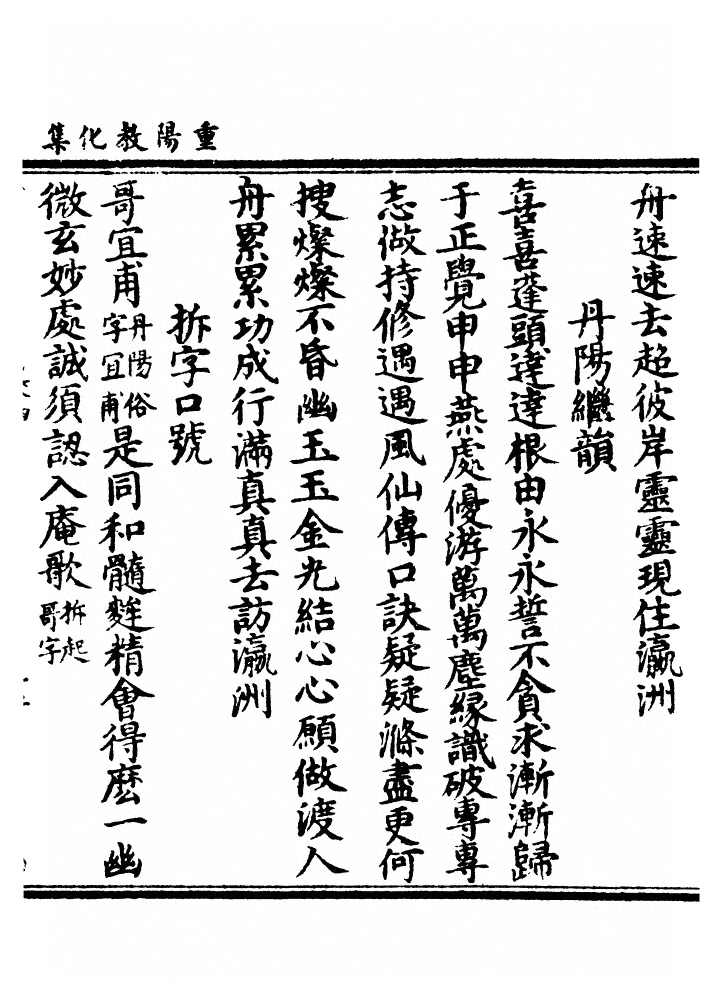 重陽教化集
舟速速去超彼岸靈靈現住瀛洲
丹陽繼韻
喜喜蓬頭達達根由永永誓不貪求漸漸歸
于正覺申申燕處優游萬萬塵緣識破專專
志做持修遇遇風仙傳口訣疑疑滌盡更何
搜燦燦不昏幽玉玉金光結心心願做渡人
舟累累功成行滿真真去訪瀛洲
拆字口號
哥宜甫丹陽俗字宜甫是同和髓麰精會得麽一幽
微玄妙處誠須認入庵歌拆起哥字